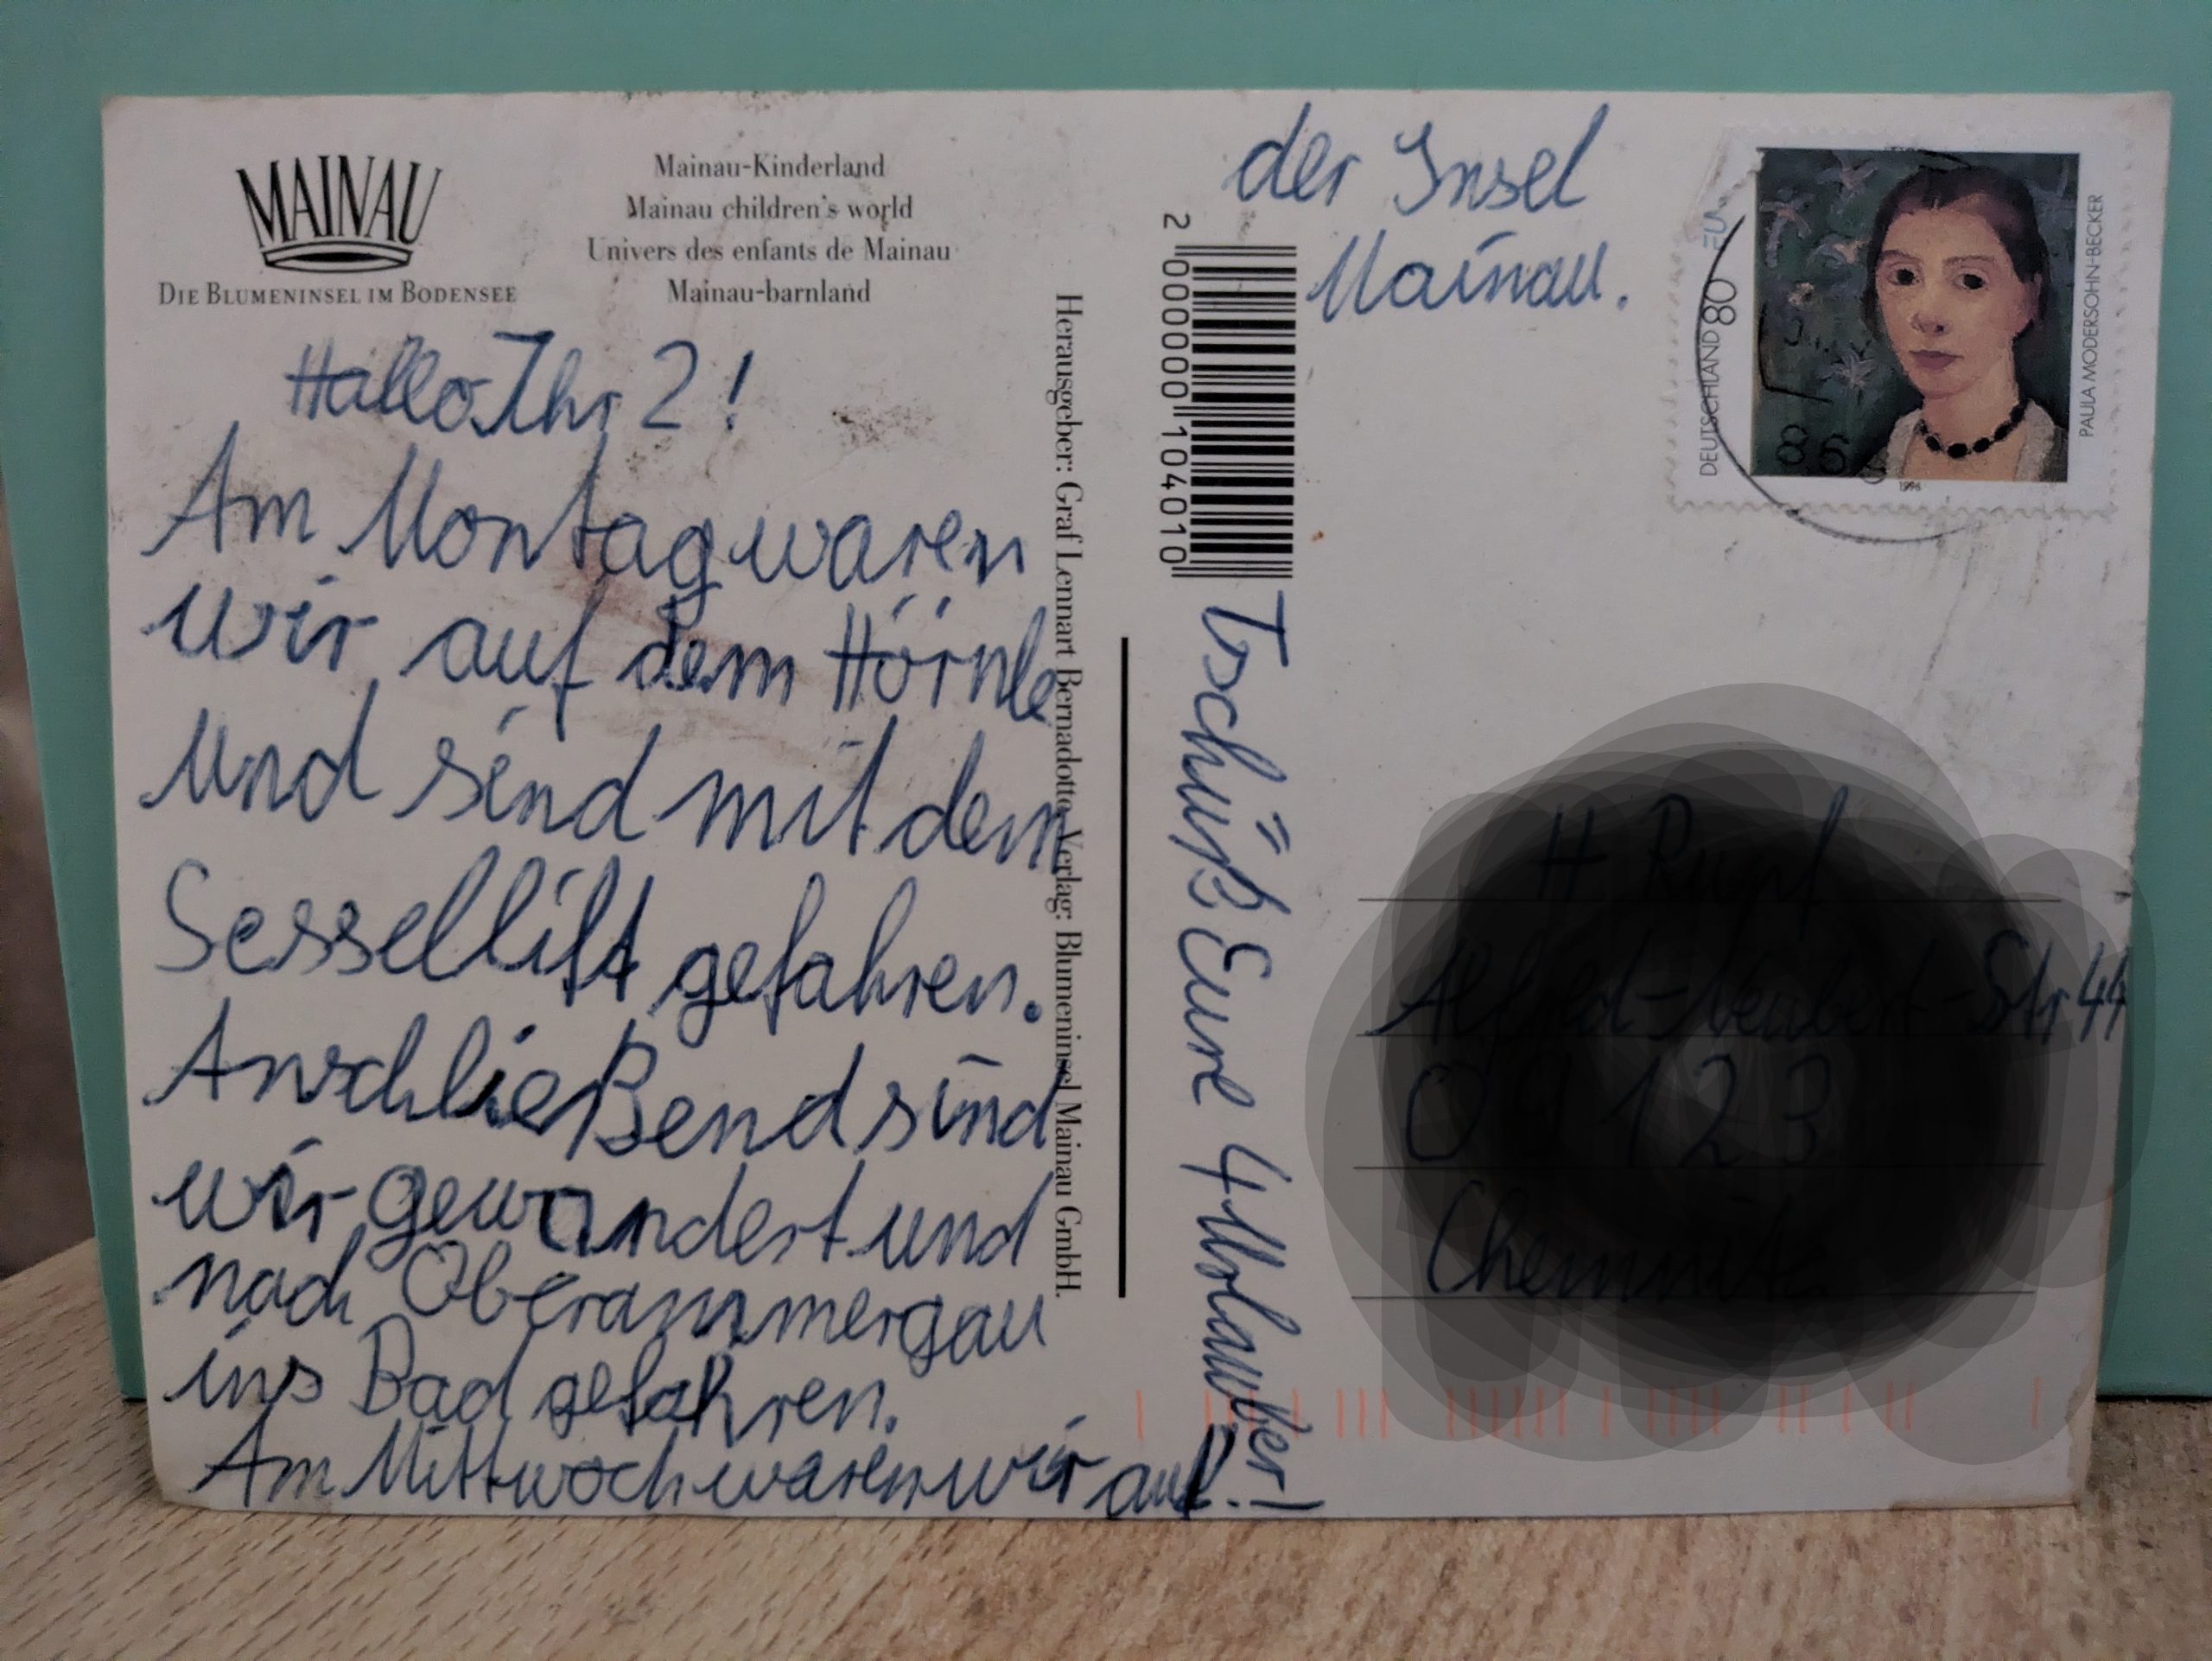 MAINAU
DIE BLUMENINSEL IM BODENSEE
Mainau-Kinderland
Mainau children's world
Univers des enfants de Mainau
Mainau-barnland
Hallo Ihr 2!
Am Montag waren
wir auf dem Hörnle
und sind mit dem
Sessellift gefahren.
Anschließend sind
wir gewandert und
nach Oberammergau
ins Bad gefahren.
Am Mittwoch waren wir auf
der Insel
Mainau.
Tschüß Eure 4 !
Herausgeber: Graf Lennart Bernadotte Verlag: Blumeninsel Mainau GmbH.
2 000000 104010
DEUTSCHLAND 80
PAULA MODERSOHN-BECKER
1996